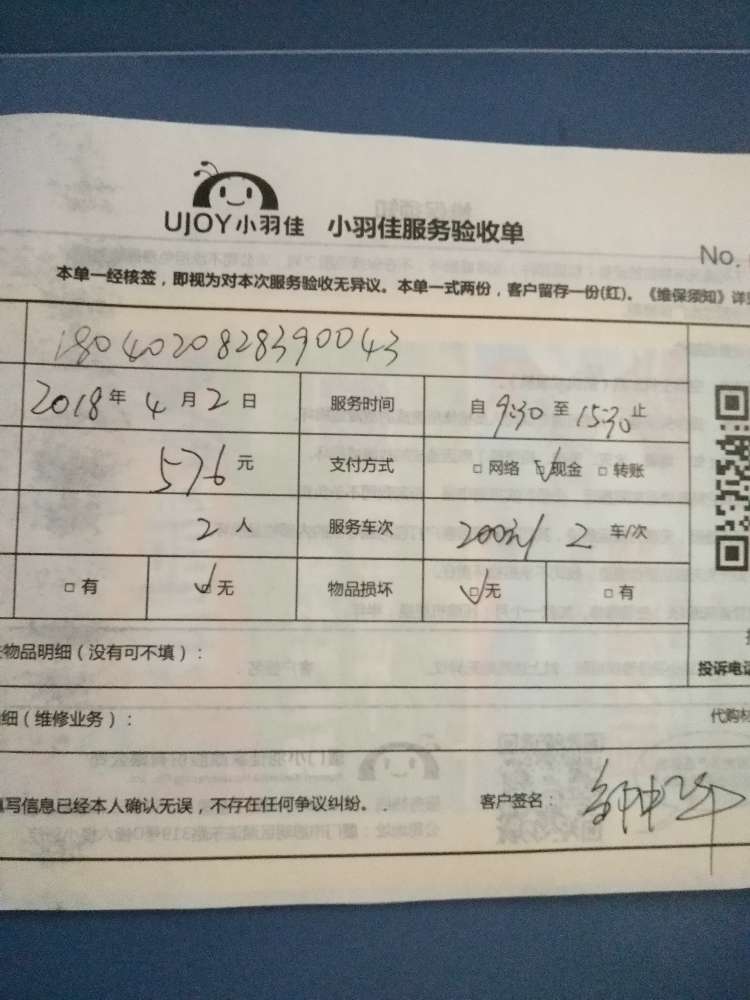 UJOY小羽佳 小羽佳服务验收单
No.
本单一经核签，即视为对本次服务验收无异议。本单一式两份，客户留存一份(红)。《维保须知》详
1804020828390043
2018年4月2日 服务时间 自9:30至15:30止
576元 支付方式 □网络 ☑现金 □转账
2人 服务车次 200元/2车/次
□有 ☑无 物品损坏 ☑无 □有
物品明细（没有可不填）：
投诉电话
细（维修业务）：
代购材
写信息已经本人确认无误，不存在任何争议纠纷。
客户签名：